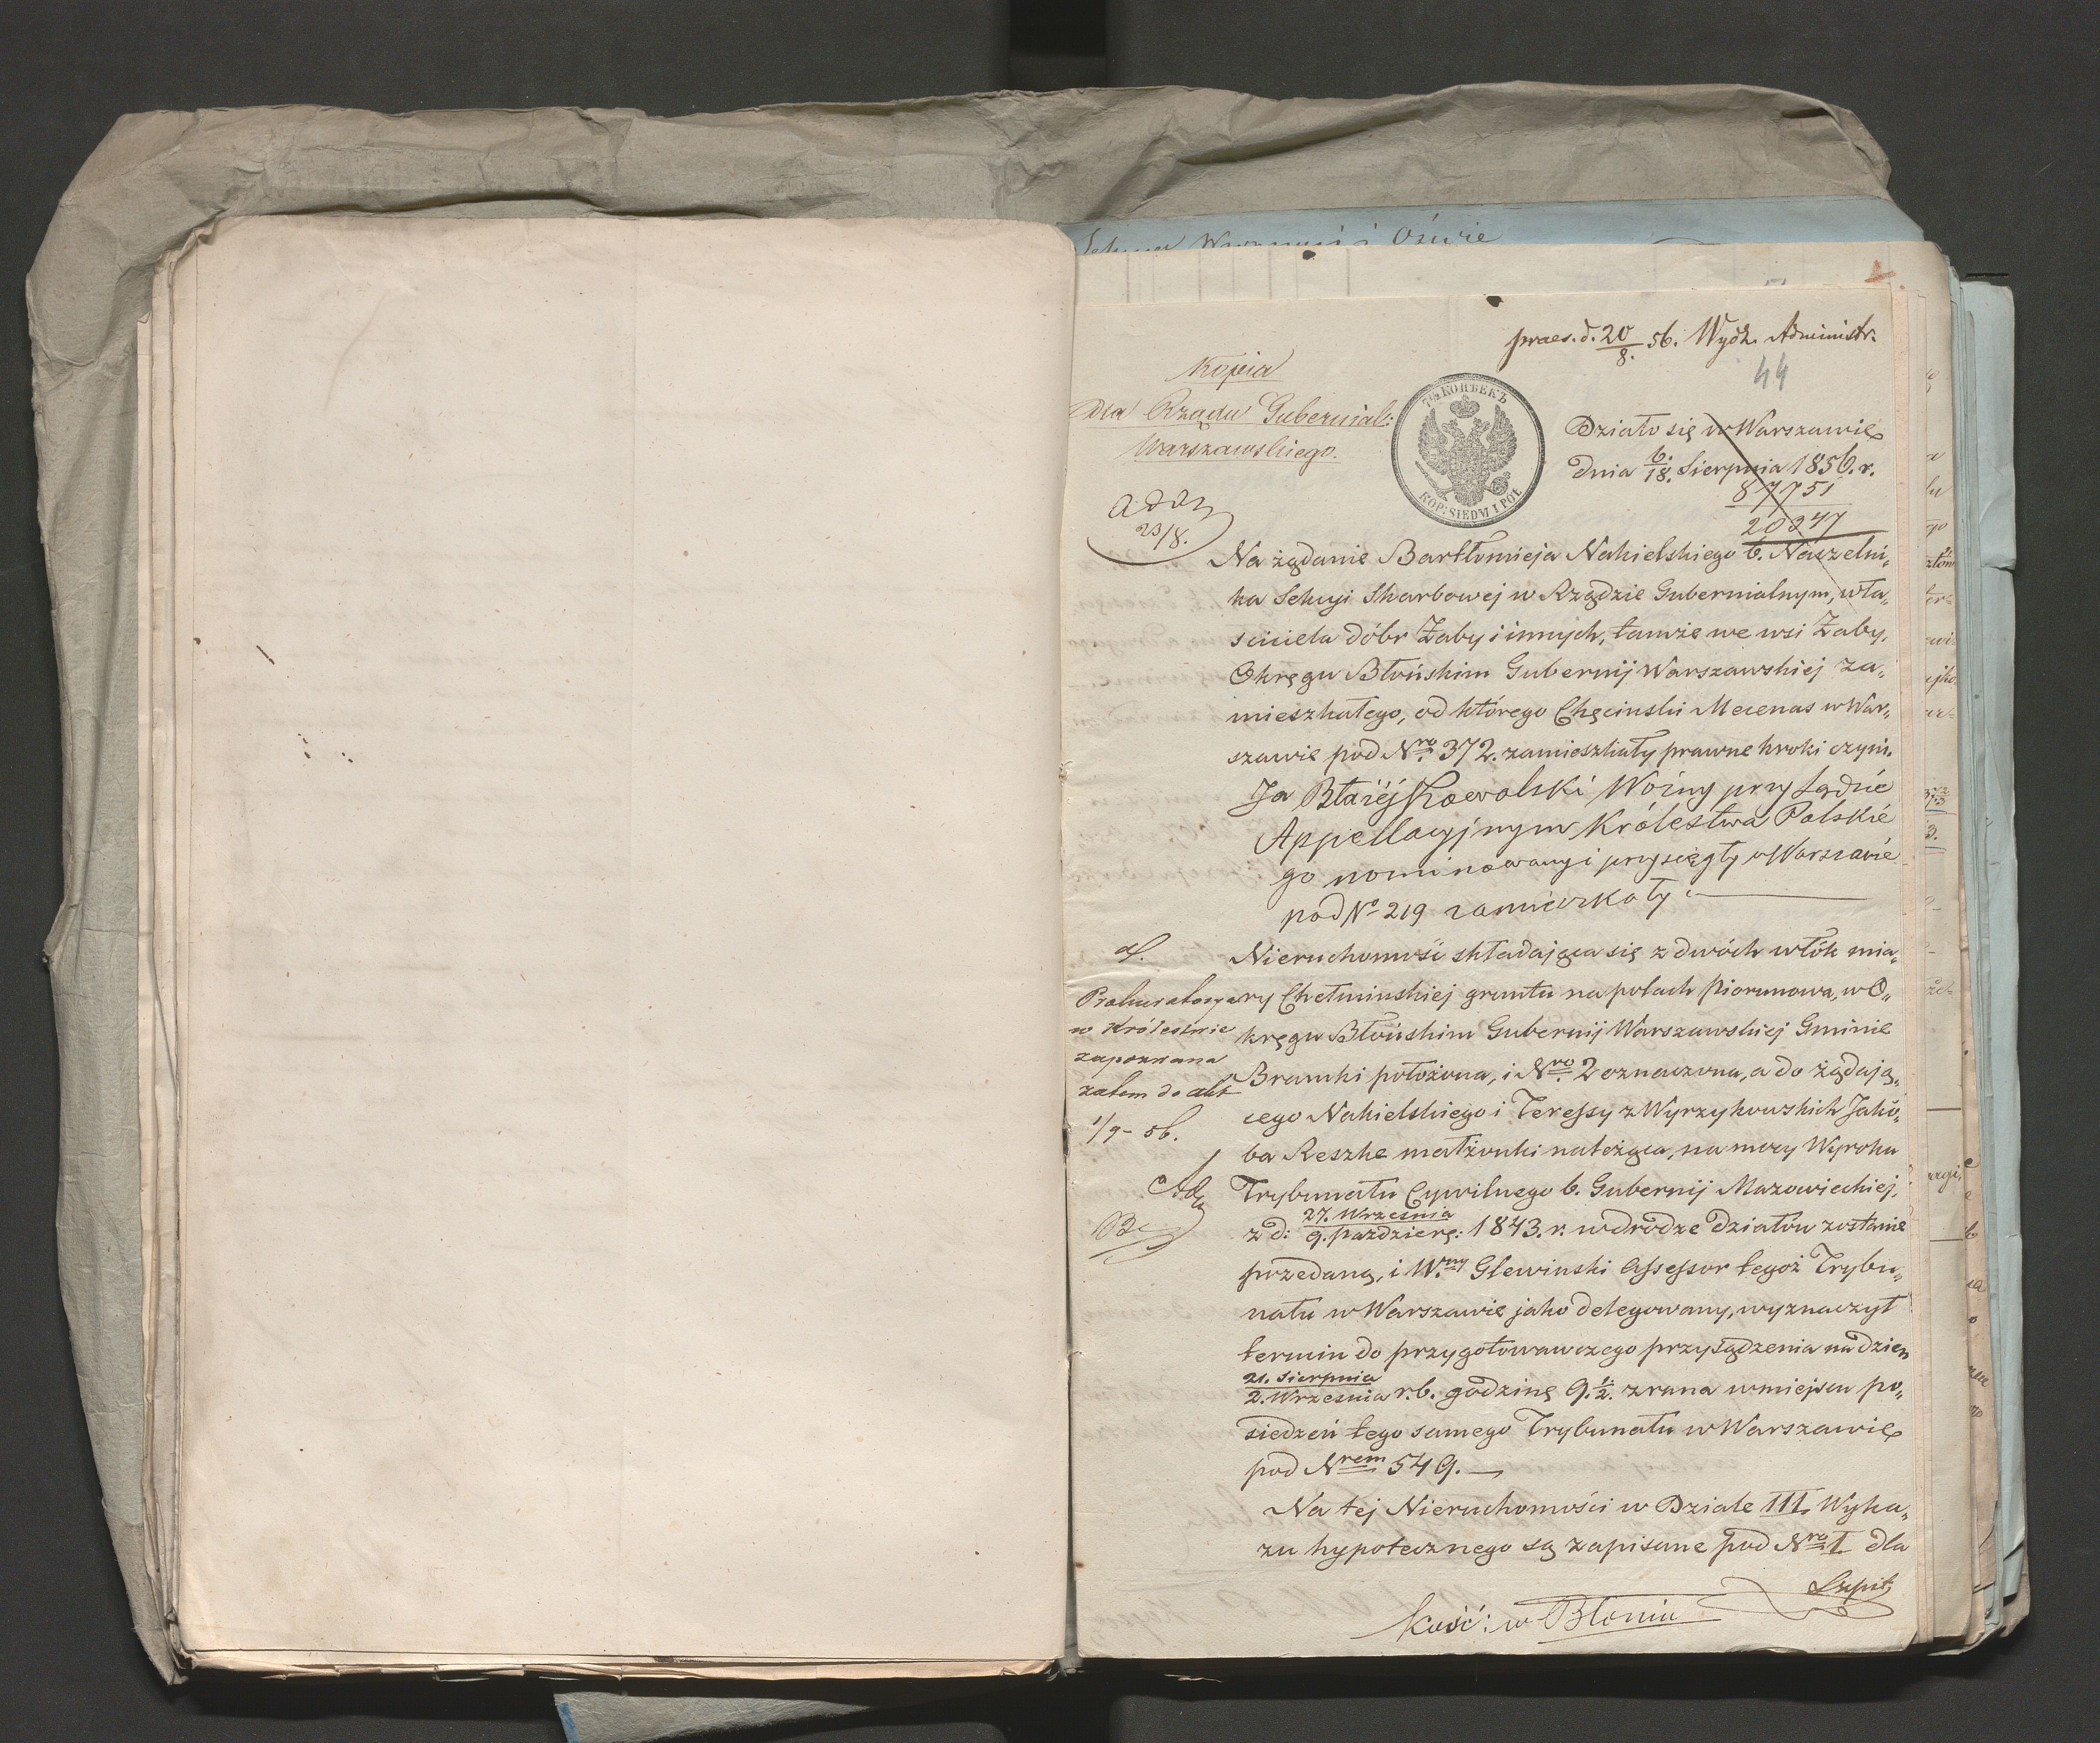 praes. d. 20/8. 56. Wydz. Administr.
44
Kopia
Dla Rządu Gubernial:
Warszawskiego.
7½ КОПѢЕКЪ
KOP: SIEDM I PÓŁ
Działo się w Warszawie
dnia 6./18. Sierpnia 1856. r.
87751
20247
23/8.
Na żądanie Bartłomieja Nakielskiego b. Naczelni„
ka Sekcyi Skarbowej w Rządzie Gubernialnym, wła„
ściciela dóbr Żaby i innych, tamże we wsi Żaby,
Okręgu Błońskim Gubernij Warszawskiej za„
mieszkałego, od którego Chęcinski Mecenas w War„
szawie pod Nro 372. zamieszkały prawne kroki czyni.
Ja Błażéj Kowalski Woźny przy Sądzie
Appellacyjnym Królestwa Polskie
go nominowany i przysięgły w Warszawie
pod No 219 zamieszkały.
Nieruchomość składająca się z dwóch włók mia„
ry Chełmińskiej gruntu na polach Piorunowa, w O„
kręgu Błońskim Gubernij Warszawskiej Gminie
Bramki położona, i Nro 2 oznaczona, a do żądają„
cego Nakielskiego i Teressy z Wyrzykowskich Jakó„
ba Reszke małżonki należąca, na mocy Wyroku
Trybunału Cywilnego b. Gubernij Mazowieckiej,
z d: 27. Września/9. Paździer: 1843. r. w drodze działów zostanie
przedaną, i W.ny Glewinski Assessor tegoż Trybu„
nału w Warszawie jako delegowany, wyznaczył
termin do przygotowawczego przysądzenia na dzien
21. Sierpnia/2. Września r. b. godzinę 9.½. zrana w miejscu po„
siedzeń tego samego Trybunału w Warszawie
pod Nrem 549. —
Na tej Nieruchomości w Dziale III Wyka„
zu hypotecznego są zapisane pod Nro 1 dla
Szpit
Kość: w Błoniu
Prokuratorya
w Królestwie
zapozwana
zatem do akt
1/9 – 56.